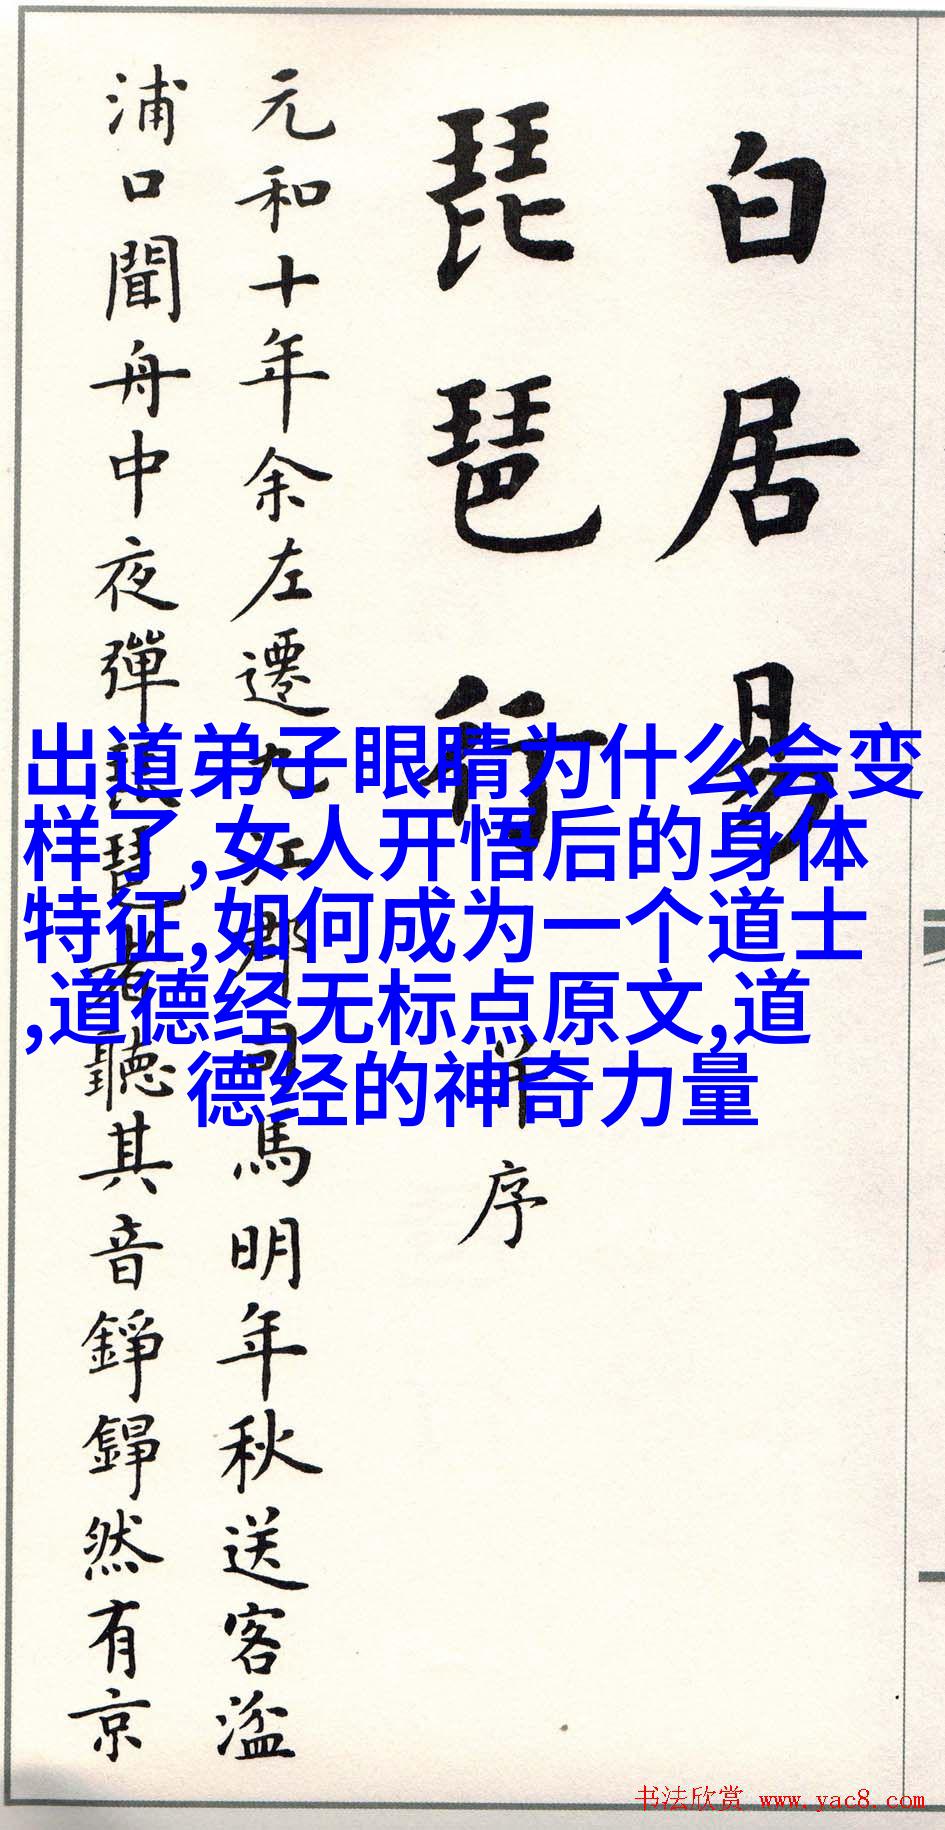 白居易
琵琶行并序
元和十年余左遷九江郡司馬明年秋送客湓
浦口聞舟中夜彈琵琶者聽其音錚錚然有京
出道弟子眼睛为什么会变
样了,女人开悟后的身体
特征,如何成为一个道士
,道德经无标点原文,道
德经的神奇力量
书法欣赏 www.yac8.com